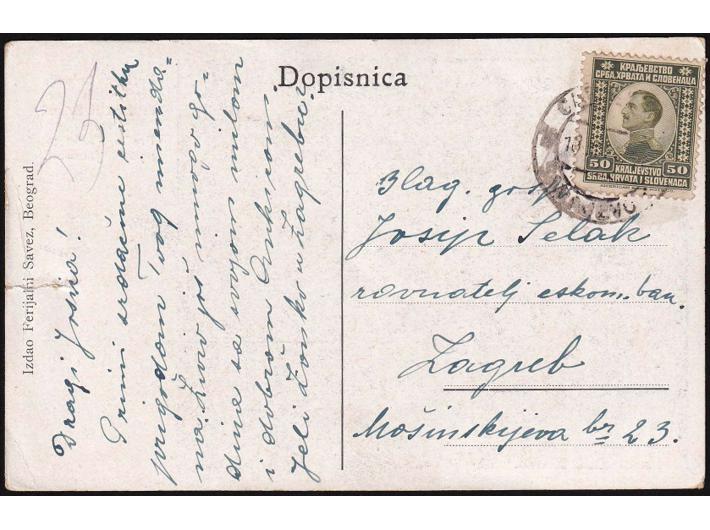 Dopisnica
Izdao Ferijalni Savez, Beograd.
Dragi Josipe!
Primi srdačne čestitke
prigodom Tvog imenda-
na. Živio još mnogo go-
dina sa svojom milom
i dobrom
Jeli Zonko u Zagrebu?
КРАЉЕВСТВО
СРБА, ХРВАТА И СЛОВЕНАЦА
50 KRALJEVSTVO 50
SRBA, HRVATA I SLOVENACA
Blag. gosp.
Josip Selak
ravnatelj eskom. ban.
Zagreb
Mošinskijeva br 23.